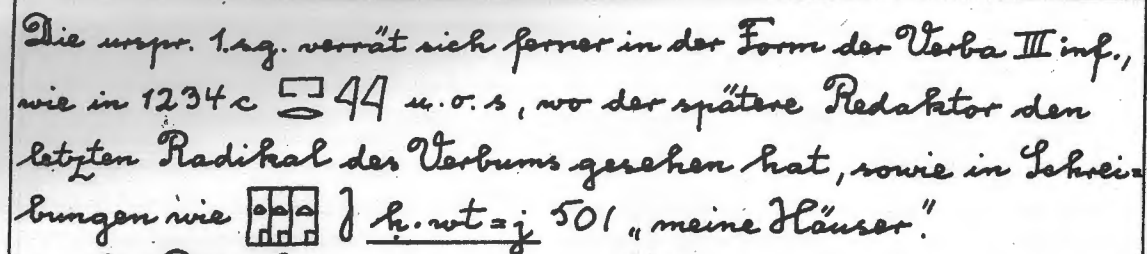 Die urspr. 1.sg. verrät sich ferner in der Form der Verba III inf.,
wie in 1234 c 𓉐𓂋𓇋𓇋 u. o. s, wo der spätere Redaktor den
letzten Radikal des Verbums gesehen hat, sowie in Schrei=
bungen wie ḥ.wt=j 501 „meine Häuser."